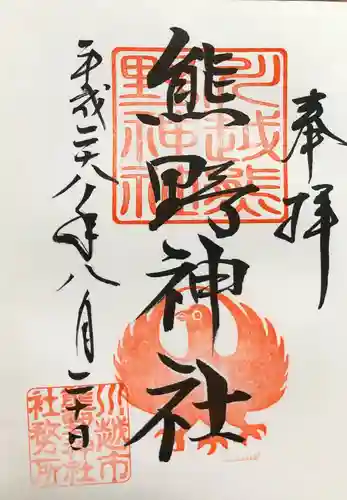 奉拝
川越熊
野神社
熊野神社
平成二十八年八月二十日
川越市
熊野神社
社務所